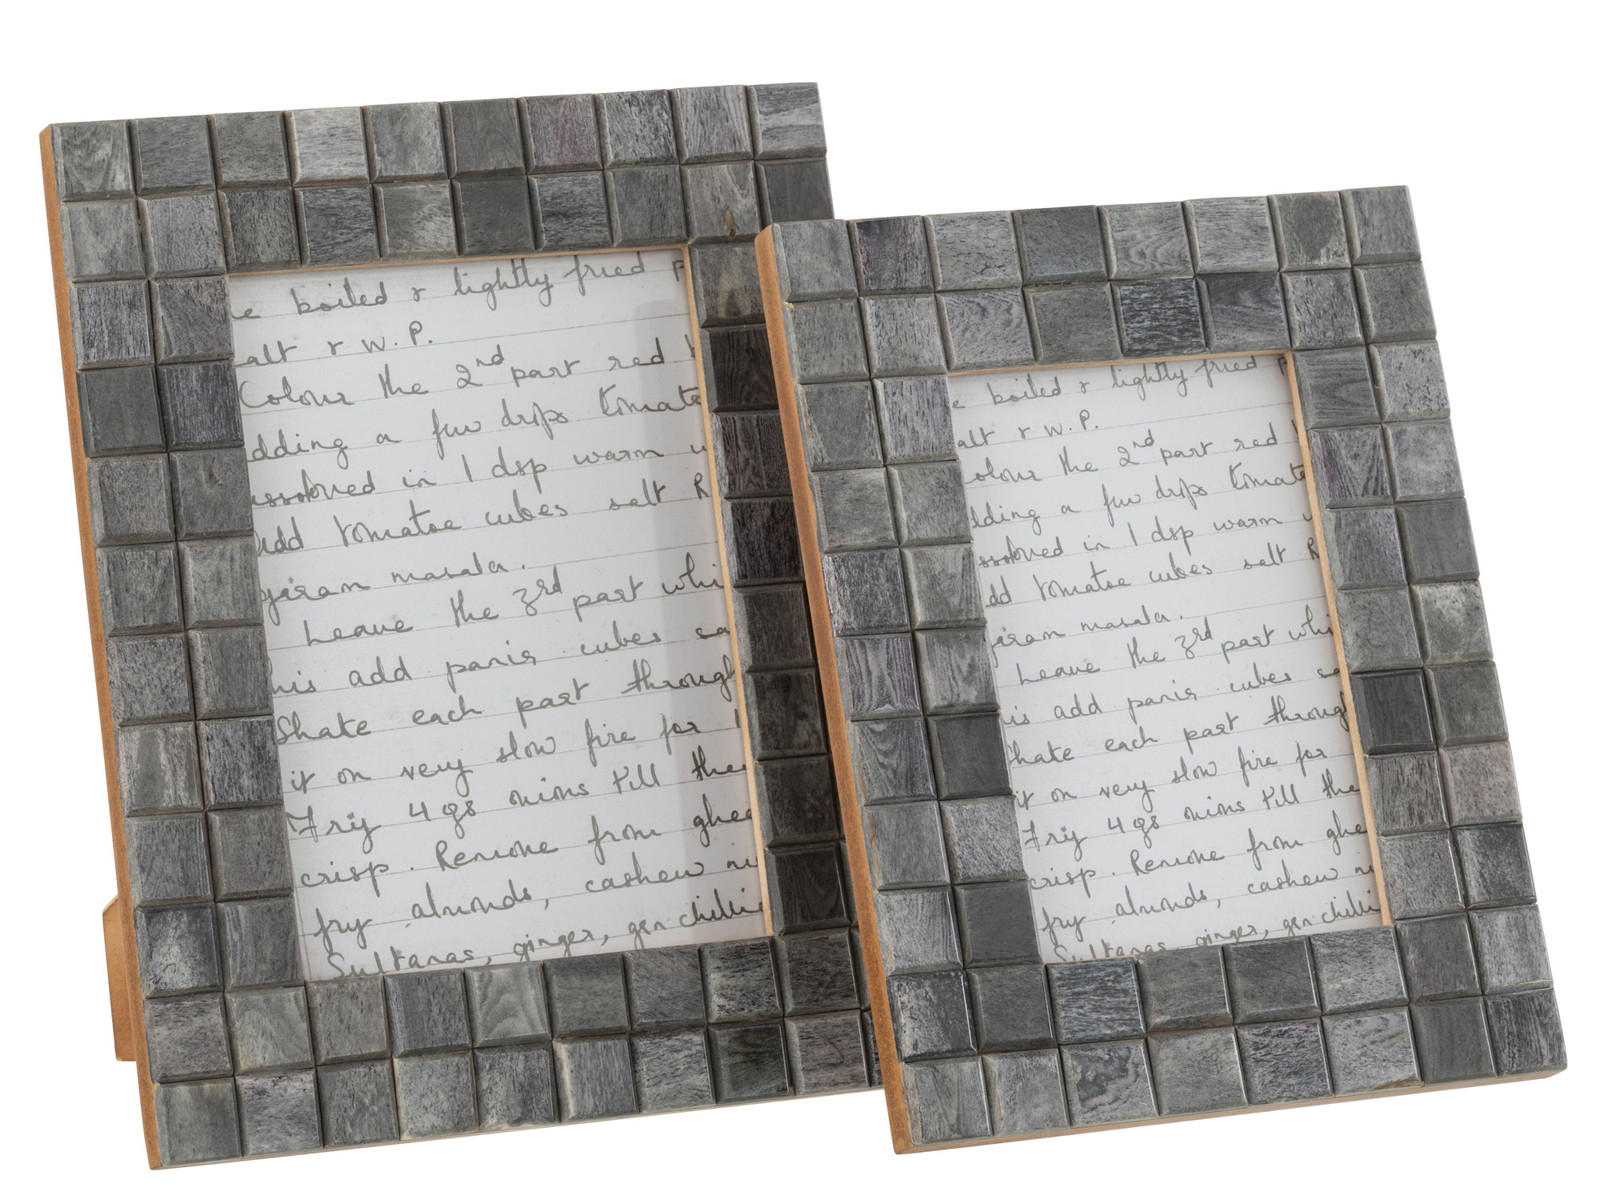 e boiled & lightly fried p
alt & W.P.
Colour the 2nd part red
dding a few drps tomato
issolved in 1 dsp warm w
add tomatoe cubes salt R
garam masala.
Leave the 3rd part whi
his add panir cubes sa
Shake each part through
it on very slow fire for 1
Fry 4 ozs onions till the
crisp. Remove from ghee
fry almonds, cashew nu
Sultanas, ginger, gen chillie
e boiled & lightly fried p
alt & W.P.
olour the 2nd part red
dding a few drps tomato
ssolved in 1 dsp warm w
dd tomatoe cubes salt R
garam masala.
Leave the 3rd part whi
is add panir cubes sa
hake each part through
it on very slow fire for
Fry 4 ozs onions till the
crisp. Remove from ghe
fry almonds, cashew n
Sultanas, ginger, gen chilli